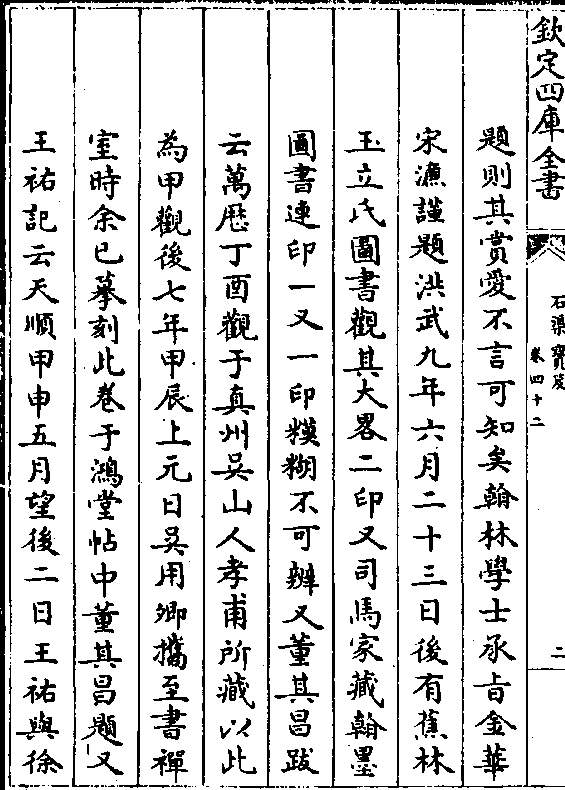 欽定四庫全書
石渠寶笈
卷四十二
二
題則其賞愛不言可知矣翰林學士承旨金華
宋濂謹題洪武九年六月二十三日後有蕉林
玉立氏圖書觀其大畧二印又司馬家藏翰墨
圖書連印一又一印糢糊不可辨又董其昌跋
云萬歴丁酉觀于真州吳山人孝甫所藏以此
為甲觀後七年甲辰上元日吳用卿攜至書禪
室時余已摹刻此卷于鴻堂帖中董其昌題又
王祐記云天順甲申五月望後二日王祐與徐